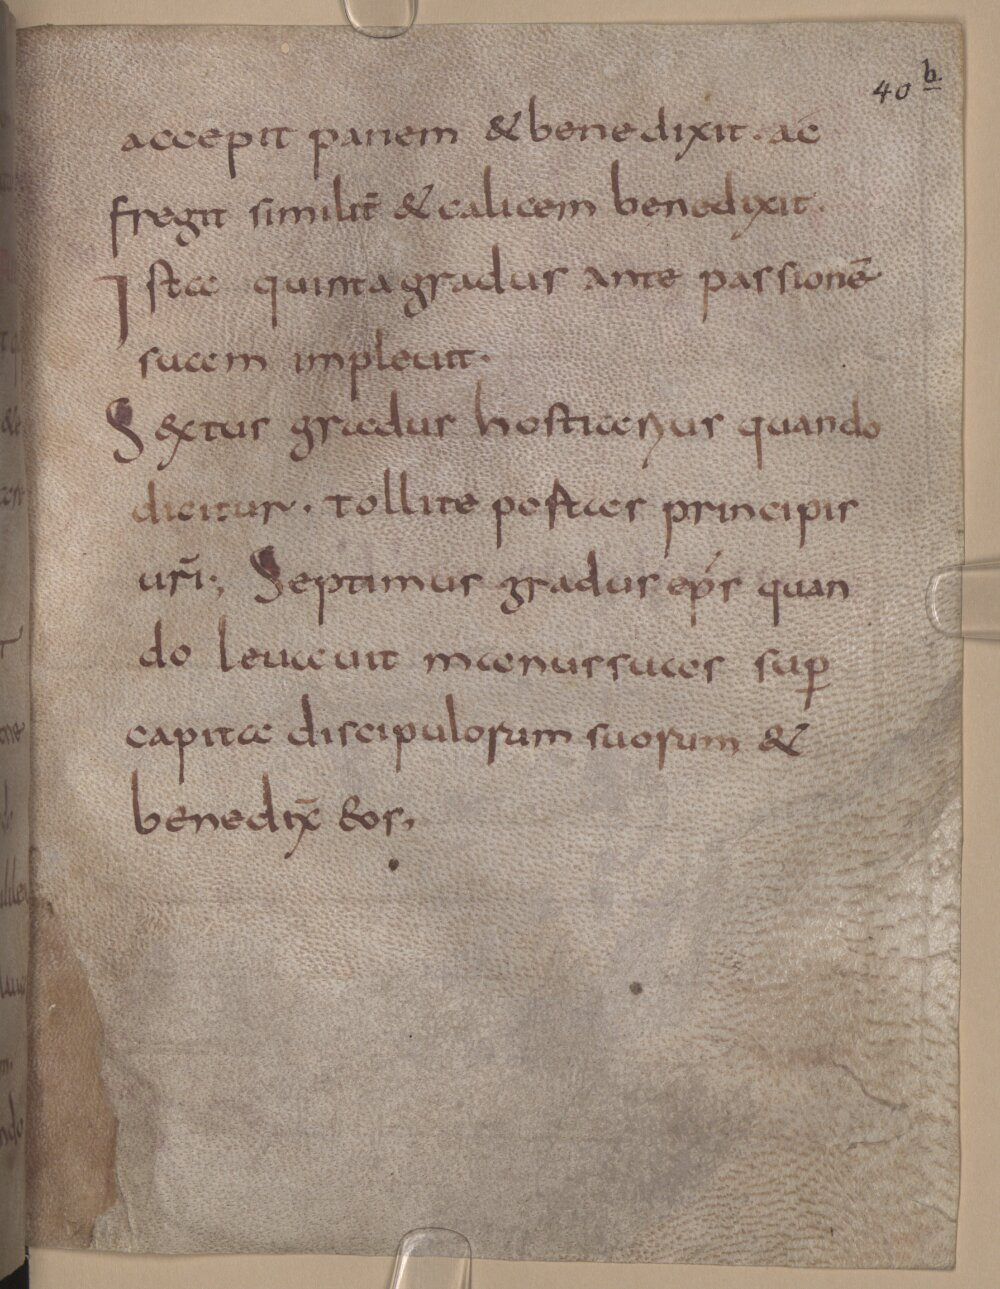 40 b
accepit panem & benedixit. ac
fregit similit̄ & calicem benedixit.
Ista quinta gradus ante passionē
suam impleuit.
Sextus gradus hostiarius quando
dicitur. tollite portas principis
uri̅; Septimus gradus ep̅s quan
do leuauit manus suas sup̲
capita discipulorum suorum &
benedix̄ eos,